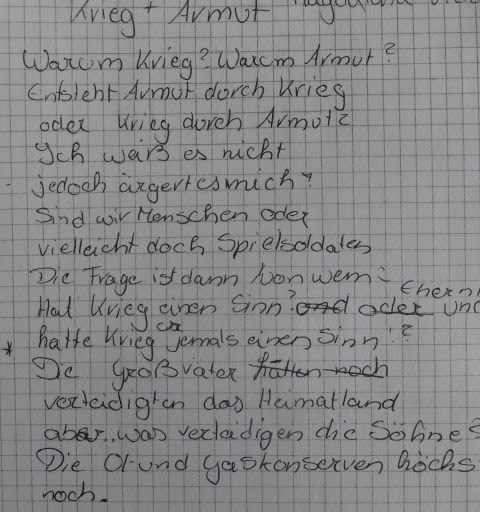 Krieg + Armut
Warum Krieg? Warum Armut?
Entsteht Armut durch Krieg
oder Krieg durch Armut?
Ich weiß es nicht
jedoch ärgert es mich!
Sind wir Menschen oder
vielleicht doch Spielsoldaten
Die Frage ist dann von wem?
Hat Krieg einen Sinn? und oder und
hatte Krieg jemals einen Sinn!?
* De Großväter hätten noch
verteidigten das Heimatland
aber, was verteidigen die Söhne?
Die Öl und Gaskonserven höchs
noch.